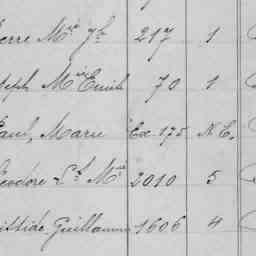 erre M.ie J.h 217 1
seph M.ie Emile 70 1
Paul, Marie Ex. 175 N.E.
eodore L.s M.ie 2010 5
istide, Guillaume 1606 4